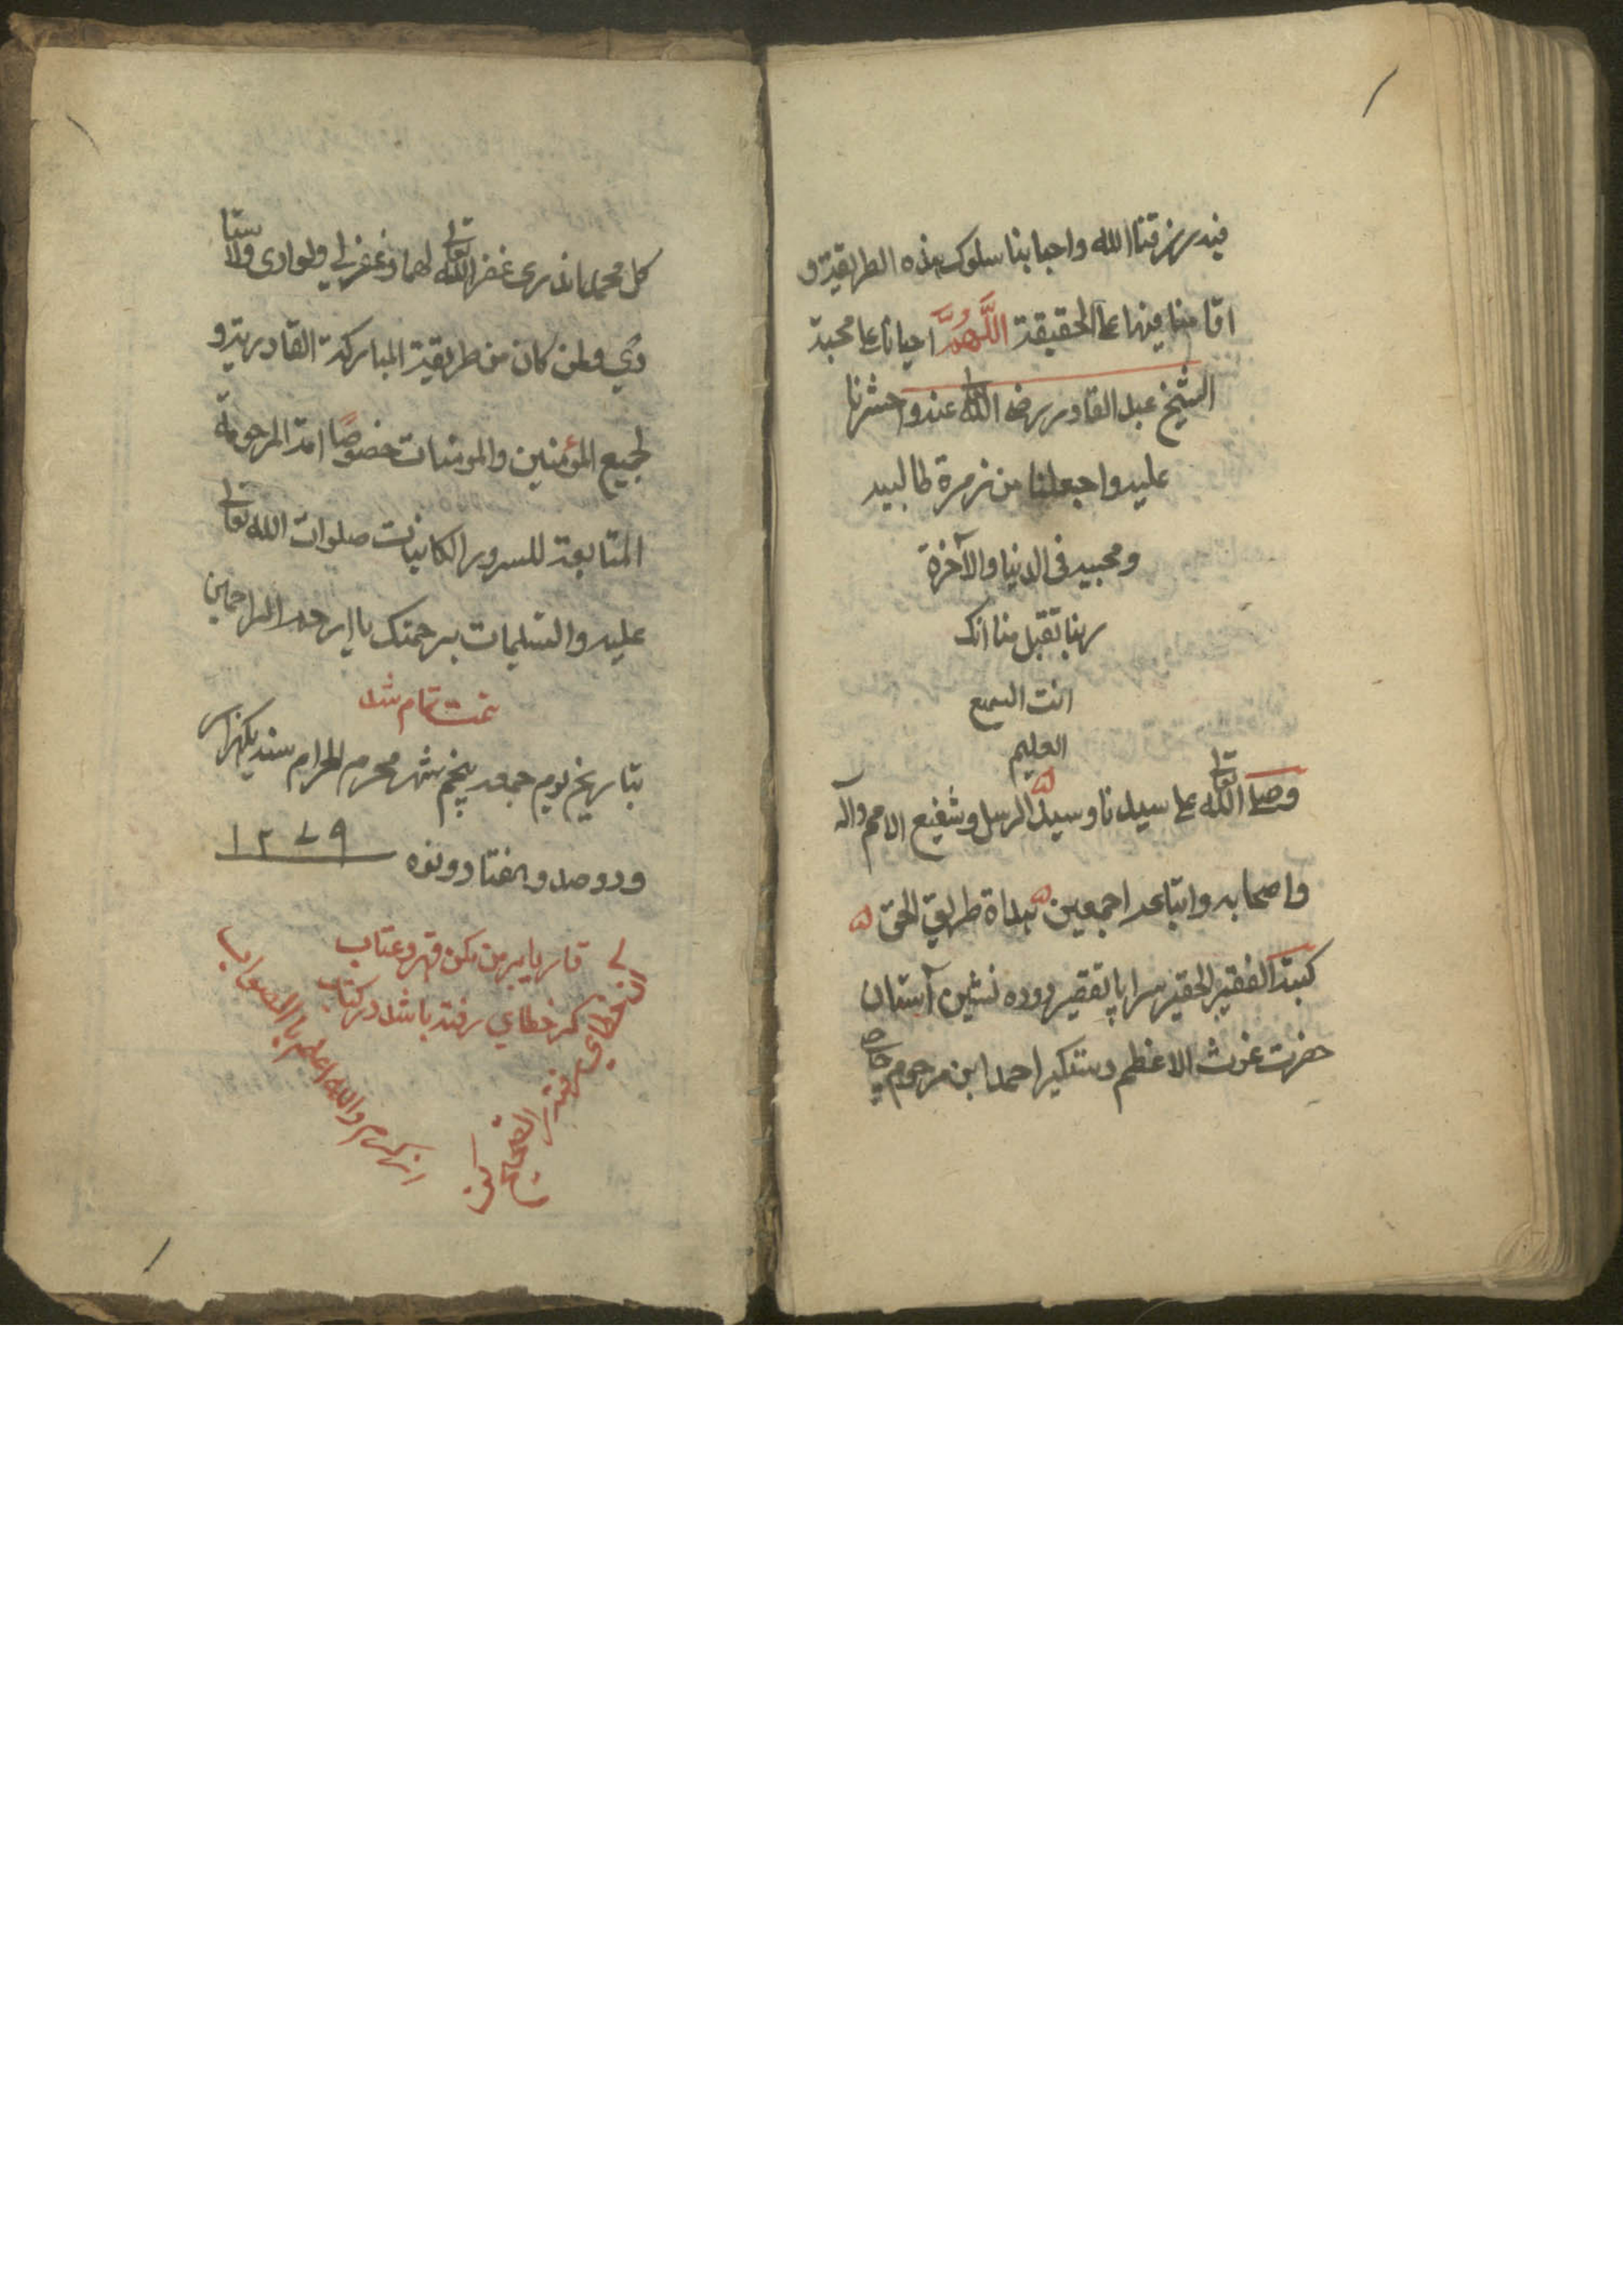 فيه رزقنا الله واحبابنا سلوک هذه الطريقة و
اقامنا فيها على الحقيقة اللَّهُمَّ احيانا على محبة
الشيخ عبد القادر رضى الله عنه واحشرنا
عليه واجعلنا من زمرة طالبيه
ومحبيه فى الدنيا والآخرة
ربنا تقبل منا انک
انت السميع
العليم
وصلى الله تعالى على سيدنا وسيد الرسل وشفيع الامم وآله
واصحابه واتباعه اجمعين هداة طريق الحق
کتبه الفقير الحقير سراپا تقصير نشين آستان
حضرت غوث الاعظم دستگير احمد ابن مرحوم حاجى
کل محمد غفر الله تعالى لهما وغفر لي ولوالدى ولاستا
دي ولمن کان من طريقة المبارکة القادرية و
لجميع المؤمنين والمومنات خصوصًا امة المرحومة
المتابعة للسرور الکاينات صلوات الله تعالى
عليه والتسليمات برحمتک يا ارحم الراحمين
تمت تمام شد
بتاريخ يوم جمعه پنجم شهر محرم الحرام سنه يکهزار
ودوصد وهفتاد ونوه ١٢٧٩
قاريا بر من مکن قهر وعتاب
گر خطاي رفته باشد در کتاب
ان خطاي رفته را تصحيح کن
از کرم والله اعلم باالصواب